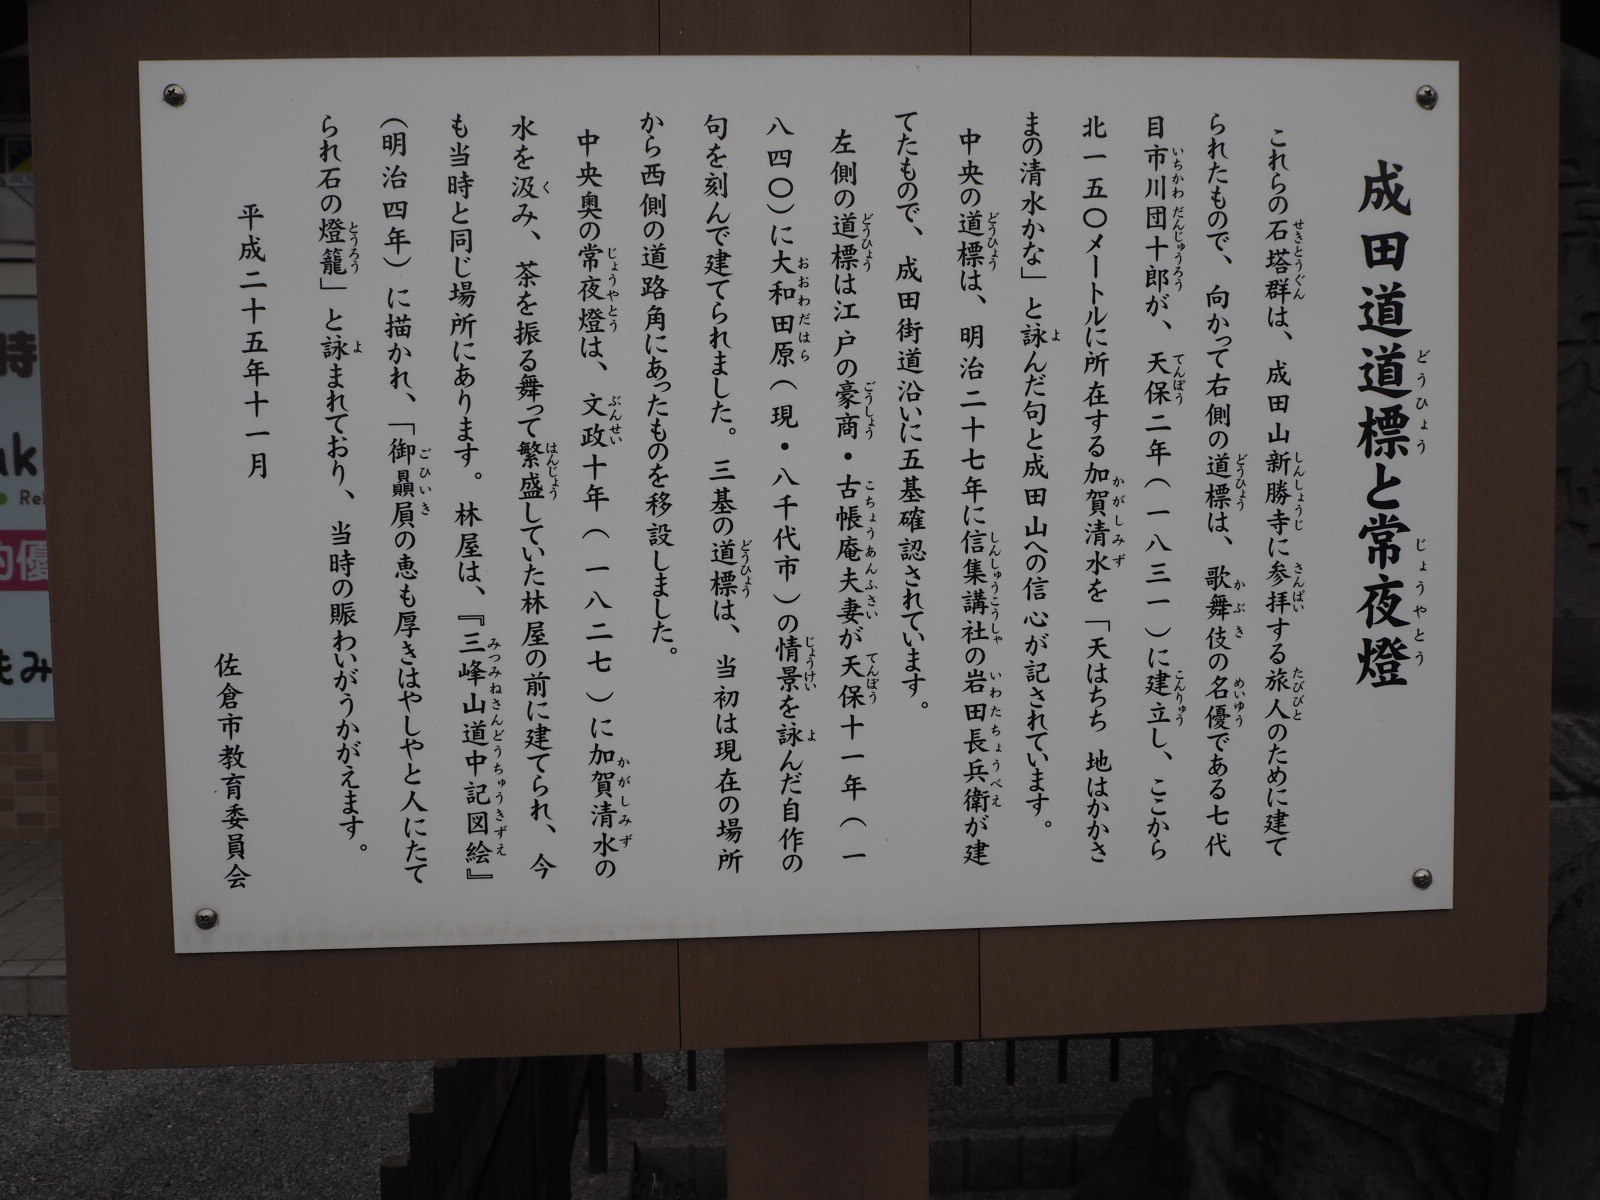 成田道道標と常夜燈
これらの石塔群は、成田山新勝寺に参拝する旅人のために建て
られたもので、向かって右側の道標は、歌舞伎の名優である七代
目市川団十郎が、天保二年（一八三一）に建立し、ここから
北一五〇メートルに所在する加賀清水を「天はちち 地はかかさ
まの清水かな」と詠んだ句と成田山への信心が記されています。
中央の道標は、明治二十七年に信集講社の岩田長兵衛が建
てたもので、成田街道沿いに五基確認されています。
左側の道標は江戸の豪商・古帳庵夫妻が天保十一年（一
八四〇）に大和田原（現・八千代市）の情景を詠んだ自作の
句を刻んで建てられました。三基の道標は、当初は現在の場所
から西側の道路角にあったものを移設しました。
中央奥の常夜燈は、文政十年（一八二七）に加賀清水の
水を汲み、茶を振る舞って繁盛していた林屋の前に建てられ、今
も当時と同じ場所にあります。林屋は、『三峰山道中記図絵』
（明治四年）に描かれ、「御贔屓の恵も厚きはやしやと人にたて
られ石の燈籠」と詠まれており、当時の賑わいがうかがえます。
平成二十五年十一月
佐倉市教育委員会